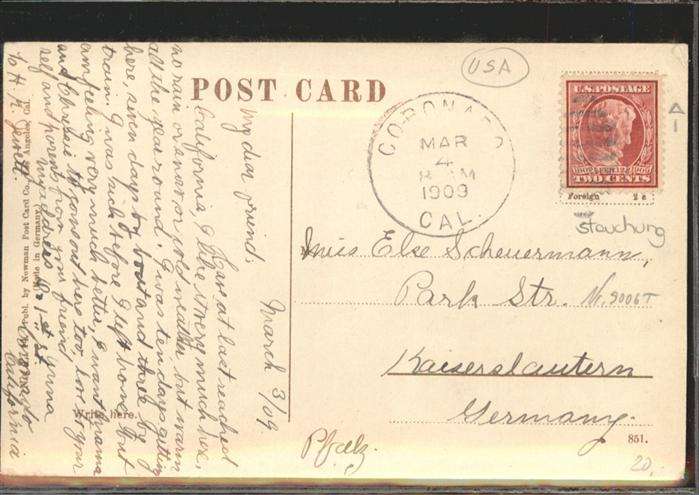 POST CARD
USA
CORONADO
MAR
4
8 AM
1909
CAL.
U.S. POSTAGE
TWO CENTS
Foreign 2 c
A
1
stauchung
March 3/09
My dear friend.
Have at last reached
California, & like it very much here.
no rain or snow or cold weather but warm
all the year round. I was ten days getting
here, seven days by boat and three by
train. I was sick before I left home but
am feeling very much better, I want mama
and to come out here too. Love to your
self and parents from your friend
Anna
my address is
Coronado
California
Miss Else Scheuermann,
Park Str.
Kaiserslautern
Germany.
Pfalz.
Write here.
Publ. by Newman Post Card Co., Los Angeles, Cal.
(Made in Germany.)
851.
20.